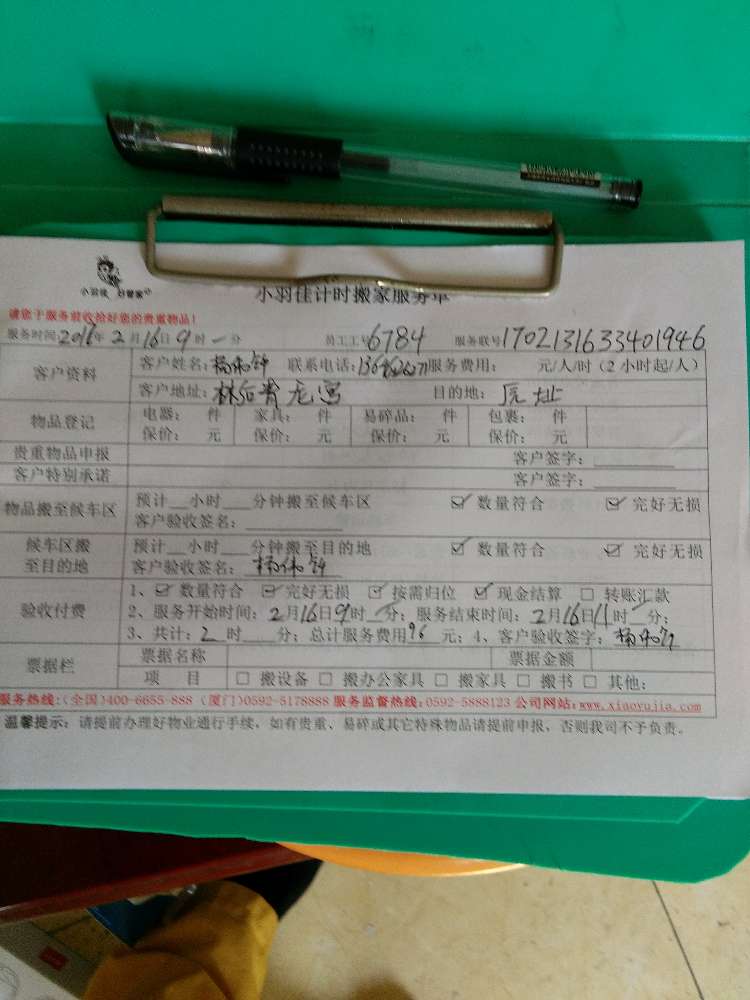 小羽佳 好管家
小羽佳计时搬家服务单
请您于服务前收拾好您的贵重物品!
服务时间2016年2月16日9时一分 员工工号6784 服务联号1702131633401946
客户资料 客户姓名: 联系电话: 服务费用: 元/人/时(2小时起/人)
客户地址: 目的地:原址
物品登记 电器: 件 家具: 件 易碎品: 件 包裹: 件
保价: 元 保价: 元 保价: 元 保价: 元
贵重物品申报 客户签字:
客户特别承诺 客户签字:
物品搬至候车区 预计__小时___分钟搬至候车区 ☑数量符合 ☑完好无损
客户验收签名:
候车区搬至目的地 预计__小时___分钟搬至目的地 ☑数量符合 ☑完好无损
客户验收签名:
验收付费 1、☑数量符合 ☑完好无损 ☑按需归位 ☑现金结算 □转账汇款
2、服务开始时间:2月16日9时一分;服务结束时间:2月16日11时一分;
3、共计:2时___分;总计服务费用96元;4、客户验收签字:
票据栏 票据名称 票据金额
项 目 □搬设备 □搬办公家具 □搬家具 □搬书 □其他:
服务热线:(全国)400-6655-888(厦门)0592-5178888 服务监督热线:0592-5888123 公司网站:www.xiaoyujia.com
温馨提示:请提前办理好物业通行手续,如有贵重、易碎或其它特殊物品请提前申报,否则我司不予负责。